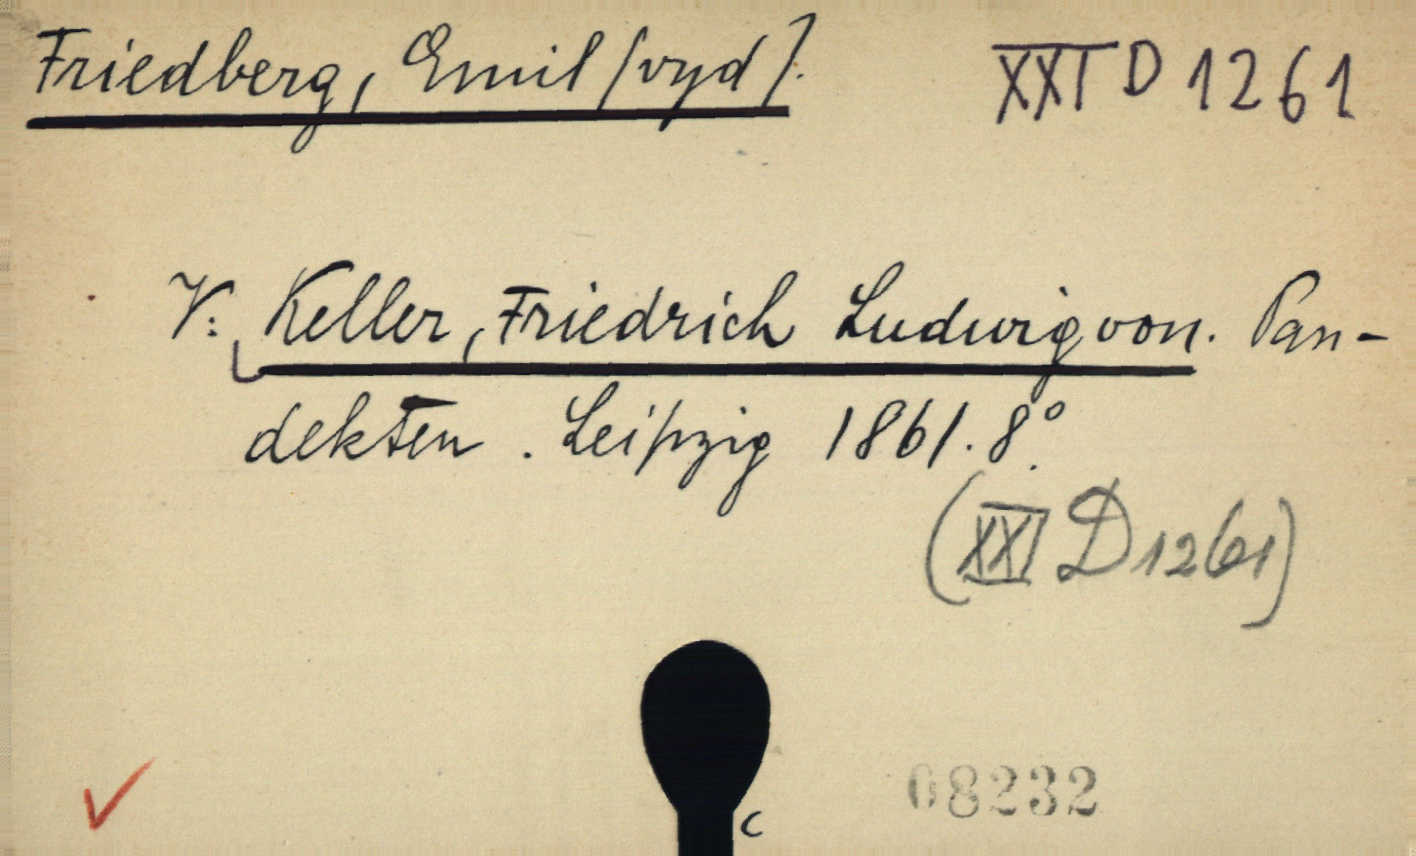 Friedberg, Emil [vyd].
XXI D 1261
V: Keller, Friedrich Ludwig von. Pan-
dekten. Leipzig 1861. 8°.
(XXI D 1261)
08232
c